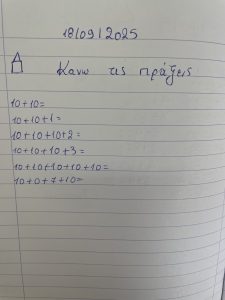 18/09/2025
Κανω τις πράξεις
10+10=
10+10+1=
10+10+10+2=
10+10+10+3=
10+10+10+10+10=
10+0+7+10=